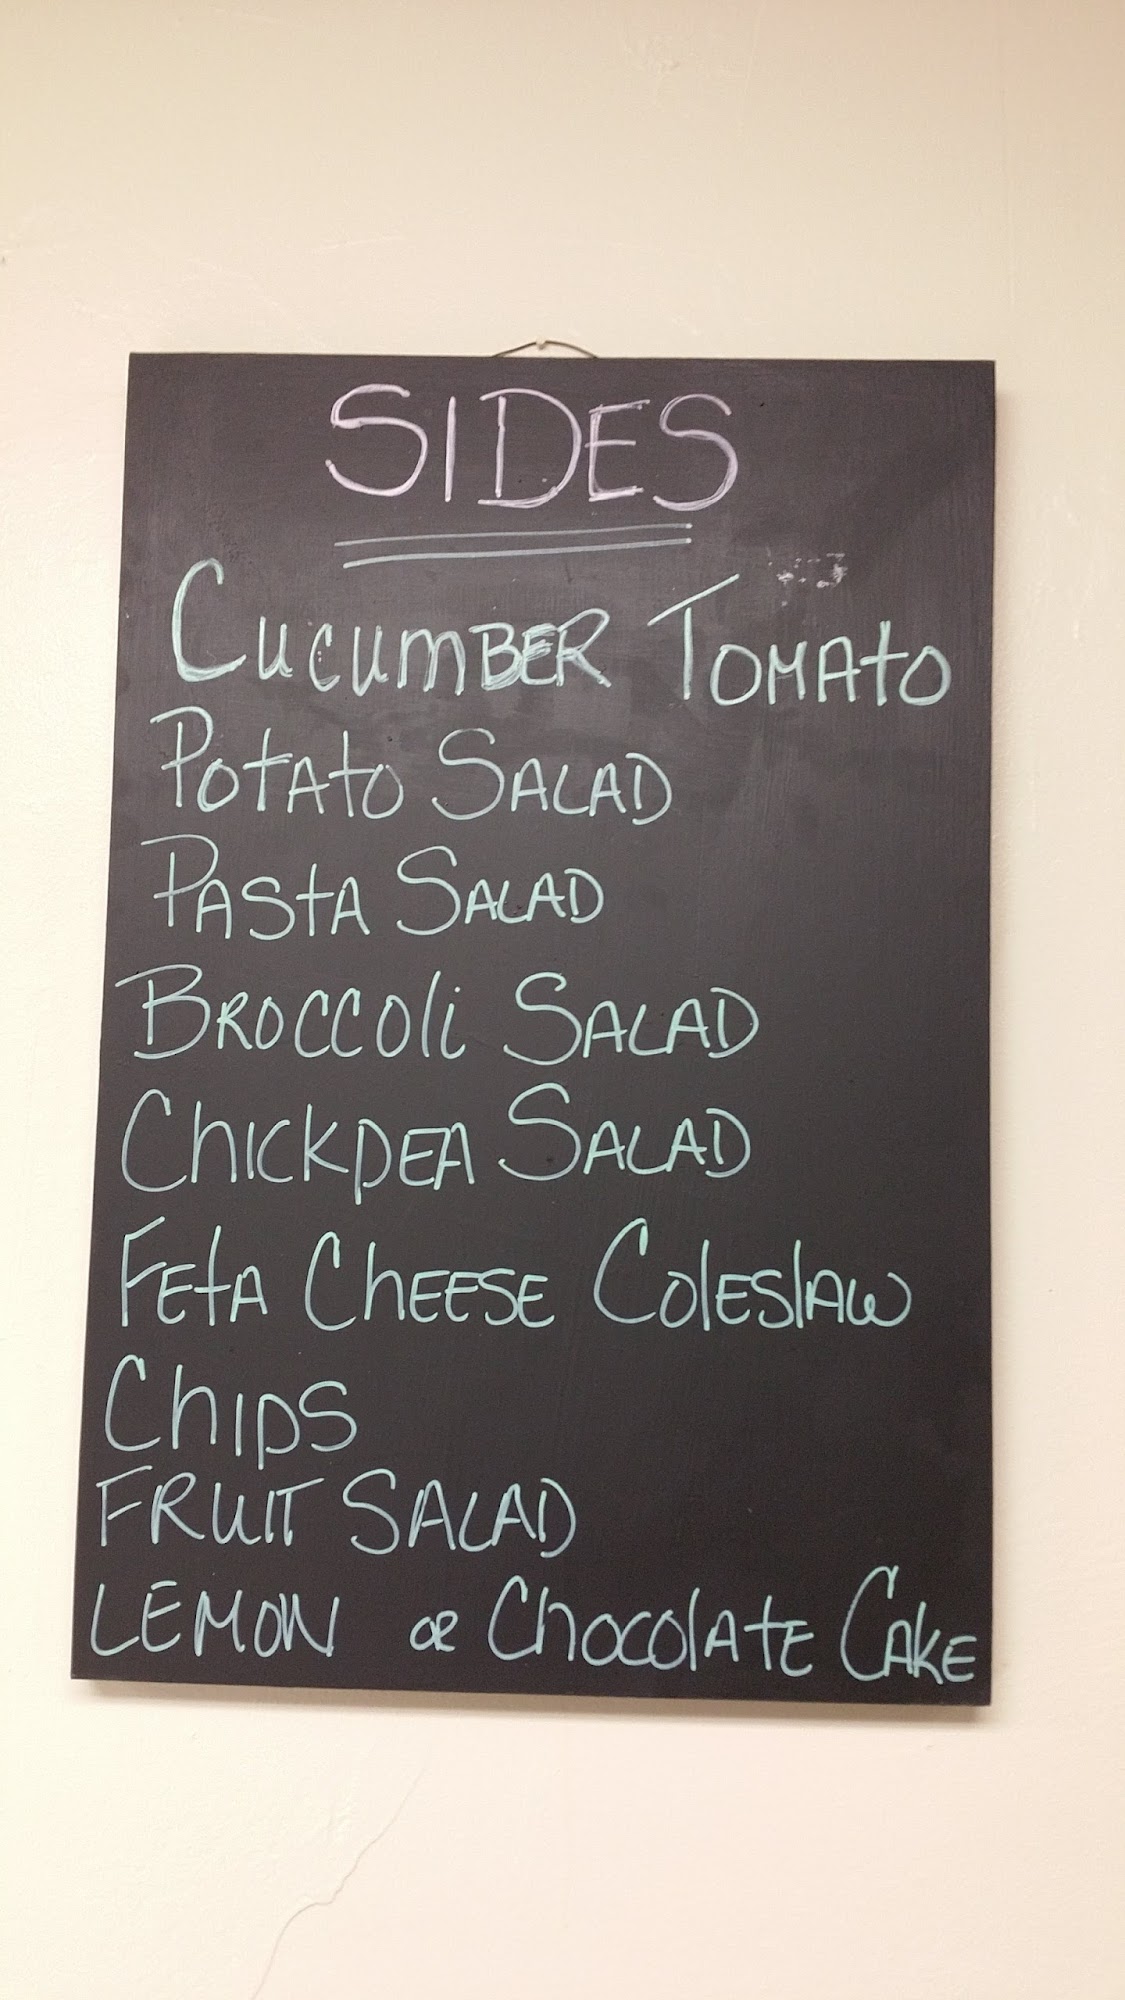 SIDES
CUCUMBER TOMATO
POTATO SALAD
PASTA SALAD
BROCCOLI SALAD
CHICKPEA SALAD
FETA CHEESE COLESLAW
CHIPS
FRUIT SALAD
LEMON OR CHOCOLATE CAKE